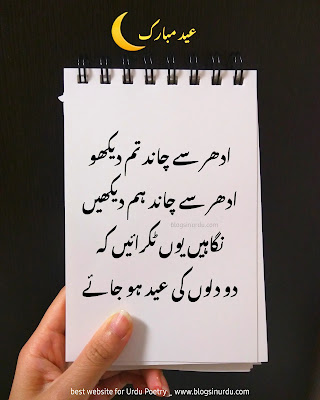 عید مبارک
ادھر سے چاند تم دیکھو
ادھر سے چاند ہم دیکھیں
blogsinurdu.com
نگاہیں یوں ٹکرائیں کہ
دو دلوں کی عید ہو جائے
best website for Urdu Poetry _ www.blogsinurdu.com